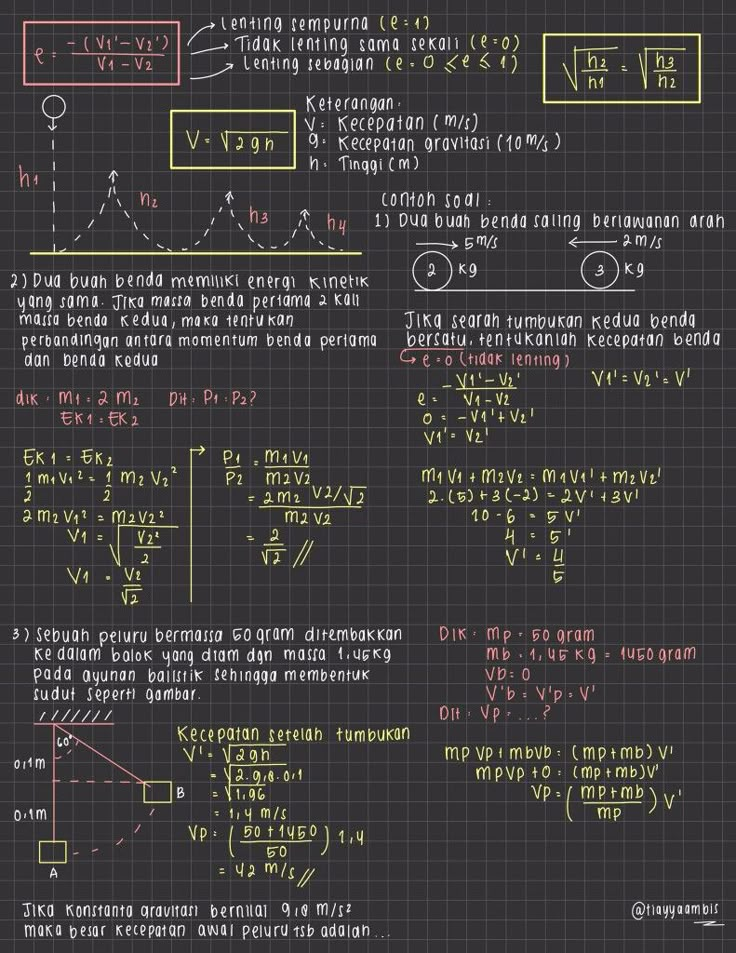 e = -(V1'-V2') / V1-V2
→ Lenting sempurna (e=1)
→ Tidak lenting sama sekali (e=0)
→ Lenting sebagian (e = 0 ≤ e ≤ 1)
√h2/h1 = √h3/h2
h1
h2
h3
h4
V = √2gh
Keterangan:
V: Kecepatan (m/s)
g: Kecepatan gravitasi (10 m/s)
h: Tinggi (m)
Contoh soal:
1) Dua buah benda saling berlawanan arah
5 m/s
2 m/s
2 kg
3 kg
Jika searah tumbukan kedua benda
bersatu, tentukanlah kecepatan benda
→ e=0 (tidak lenting)
e = - V1'-V2' / V1-V2
V1' = V2' = V'
0 = -V1'+V2'
V1' = V2'
m1V1 + m2V2 = m1V1' + m2V2'
2.(5)+3(-2) = 2V'+3V'
10-6 = 5V'
4 = 5'
V' = 4/5
2) Dua buah benda memiliki energi kinetik
yang sama. Jika massa benda pertama 2 kali
massa benda kedua, maka tentukan
perbandingan antara momentum benda pertama
dan benda kedua
dik: m1 = 2 m2
Dit: P1:P2?
Ek1 = Ek2
Ek1 = Ek2
1/2 m1V1² = 1/2 m2V2²
2m2V1² = m2V2²
V1 = √V2²/2
V1 = V2/√2
P1/P2 = m1V1/m2V2
= 2m2 V2/√2 / m2V2
= 2/√2 //
3) Sebuah peluru bermassa 50 gram ditembakkan
ke dalam balok yang diam dgn massa 1,45kg
pada ayunan balistik sehingga membentuk
sudut seperti gambar.
60°
0,1m
0,1m
B
A
Kecepatan setelah tumbukan
V' = √2gh
= √2.9,8.0,1
= √1,96
= 1,4 m/s
Vp = (50+1450 / 50) 1,4
= 42 m/s //
Jika konstanta gravitasi bernilai 9,8 m/s²
maka besar kecepatan awal peluru tsb adalah...
Dik: mp = 50 gram
mb = 1,45 kg = 1450 gram
Vb = 0
V'b = V'p = V'
Dit: Vp = ....?
mpVp + mbVb = (mp+mb) V'
mpVp + 0 = (mp+mb)V'
Vp = (mp+mb / mp) V'
@tiayyaambis